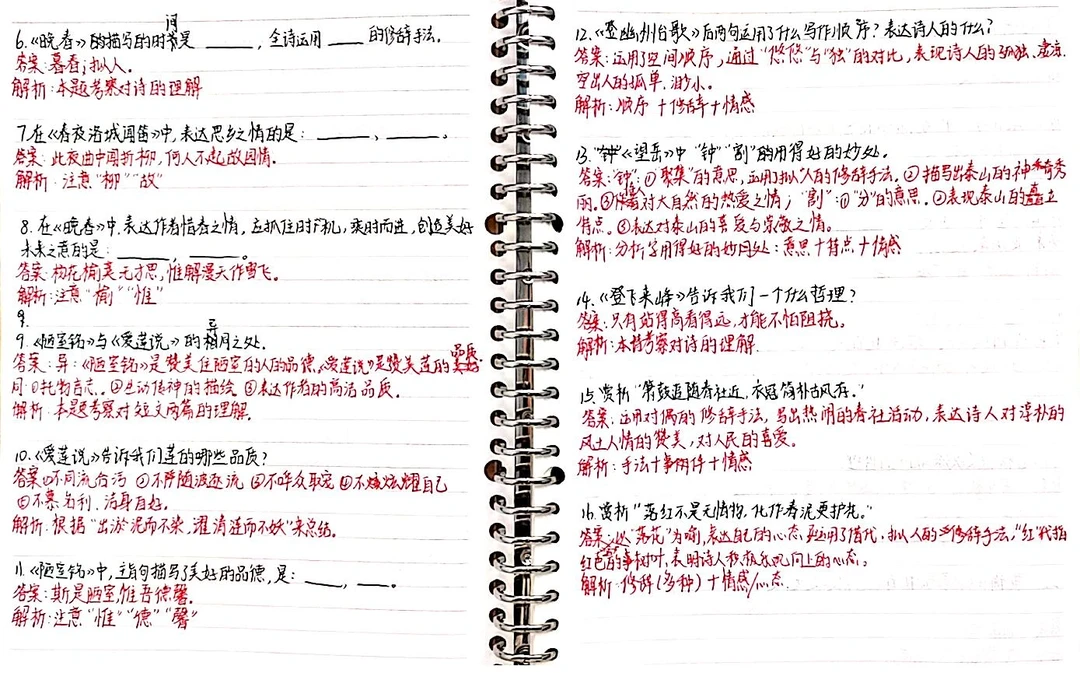 间
6.《晚春》的描写的时是______，全诗运用____的修辞手法。
答案：暮春；拟人。
解析：本题考察对诗的理解
7.在《春夜洛城闻笛》中，表达思乡之情的是：______、______。
答案：此夜曲中闻折柳，何人不起故园情。
解析：注意“柳”“故”
8.在《晚春》中，表达作者惜春之情，应抓住时机，乘时而进，创造美好
未来之意的是：______，______。
答案：杨花榆荚无才思，惟解漫天作雪飞。
解析：注意“榆”“惟”
9.
异
9.《陋室铭》与《爱莲说》的相同之处。
答案：异：《陋室铭》是赞美住陋室的人的品德，《爱莲说》是赞美莲的品质
同：①托物言志。②生动传神的描绘 ③表达作者的高洁品质。
解析：本题考察对短文两篇的理解。
10.《爱莲说》告诉我们莲的哪些品质？
答案：①不同流合污 ②不随波逐流 ③不哗众取宠 ④不炫耀自己
⑤不慕名利、洁身自好。
解析：根据“出淤泥而不染，濯清涟而不妖”来总结。
11.《陋室铭》中，主旨句描写了美好的品德，是：____，____。
答案：斯是陋室，惟吾德馨。
解析：注意“惟”“德”“馨”
12.《登幽州台歌》后两句运用了什么写作顺序？表达诗人的什么？
答案：运用了空间顺序，通过“悠悠”与“独”的对比，表现诗人的孤独、凄凉，
突出人的孤单、渺小。
解析：顺序+修辞+情感
13.《望岳》中“钟”“割”的用得好的妙处。
答案：“钟”：①“聚集”的意思，运用拟人的修辞手法。②描写出泰山的神奇秀
丽。③作者对大自然的热爱之情；“割”：①“分”的意思。②表现泰山的矗立
特点。③表达对泰山的喜爱与崇敬之情。
解析：分析字用得好的妙处：意思+特点+情感
14.《登飞来峰》告诉我们一个什么哲理？
答案：只有站得高看得远，才能不怕阻挠。
解析：本持考察对诗的理解.
15.赏析“箫鼓追随春社近，衣冠简朴古风存。”
答案：运用对偶的修辞手法，写出热闹的春社活动，表达诗人对淳朴的
风土人情的赞美，对人民的喜爱。
解析：手法+事件+情感
16.赏析“落红不是无情物，化作春泥更护花。”
答案：以“落花”为喻，表达自己的心态，运用了借代，拟人的修辞手法，“红”代指
红色的树叶，表明诗人积极乐观向上的心态。
解析：修辞（多种）+情感/心态.